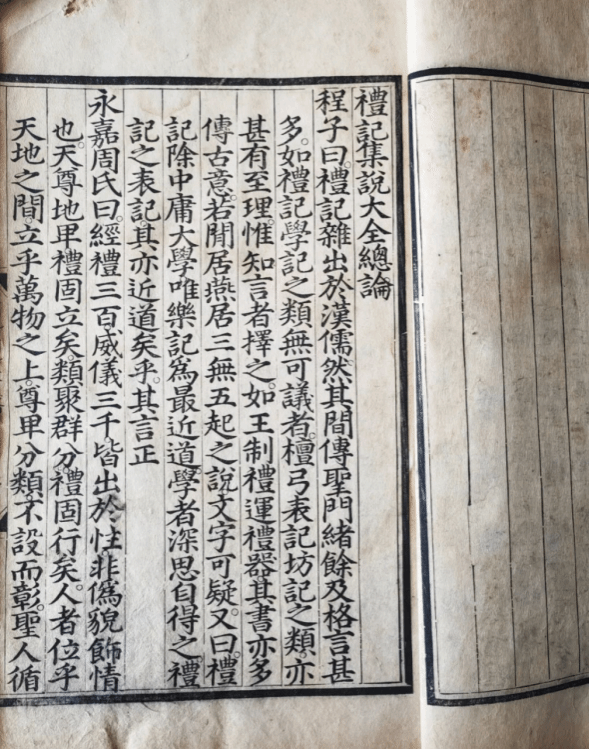 禮記集說大全總論
程子曰。禮記雜出於漢儒然其間傳聖門緒餘及格言甚
多。如禮記學記之類無可議者。檀弓表記坊記之類。亦
甚有至理。惟知言者擇之。如王制禮運禮器其書亦多
傳古意。若閒居燕居三無五起之說文字可疑。又曰。禮
記除中庸大學唯樂記爲最近道。學者深思自得之。禮
記之表記。其亦近道矣乎。其言正
永嘉周氏曰。經禮三百威儀三千。皆出於性非僞貌飾情
也。天尊地卑禮固立矣。類聚群分。禮固行矣。人者位乎
天地之間。立乎萬物之上。尊卑分類不設而彰。聖人循